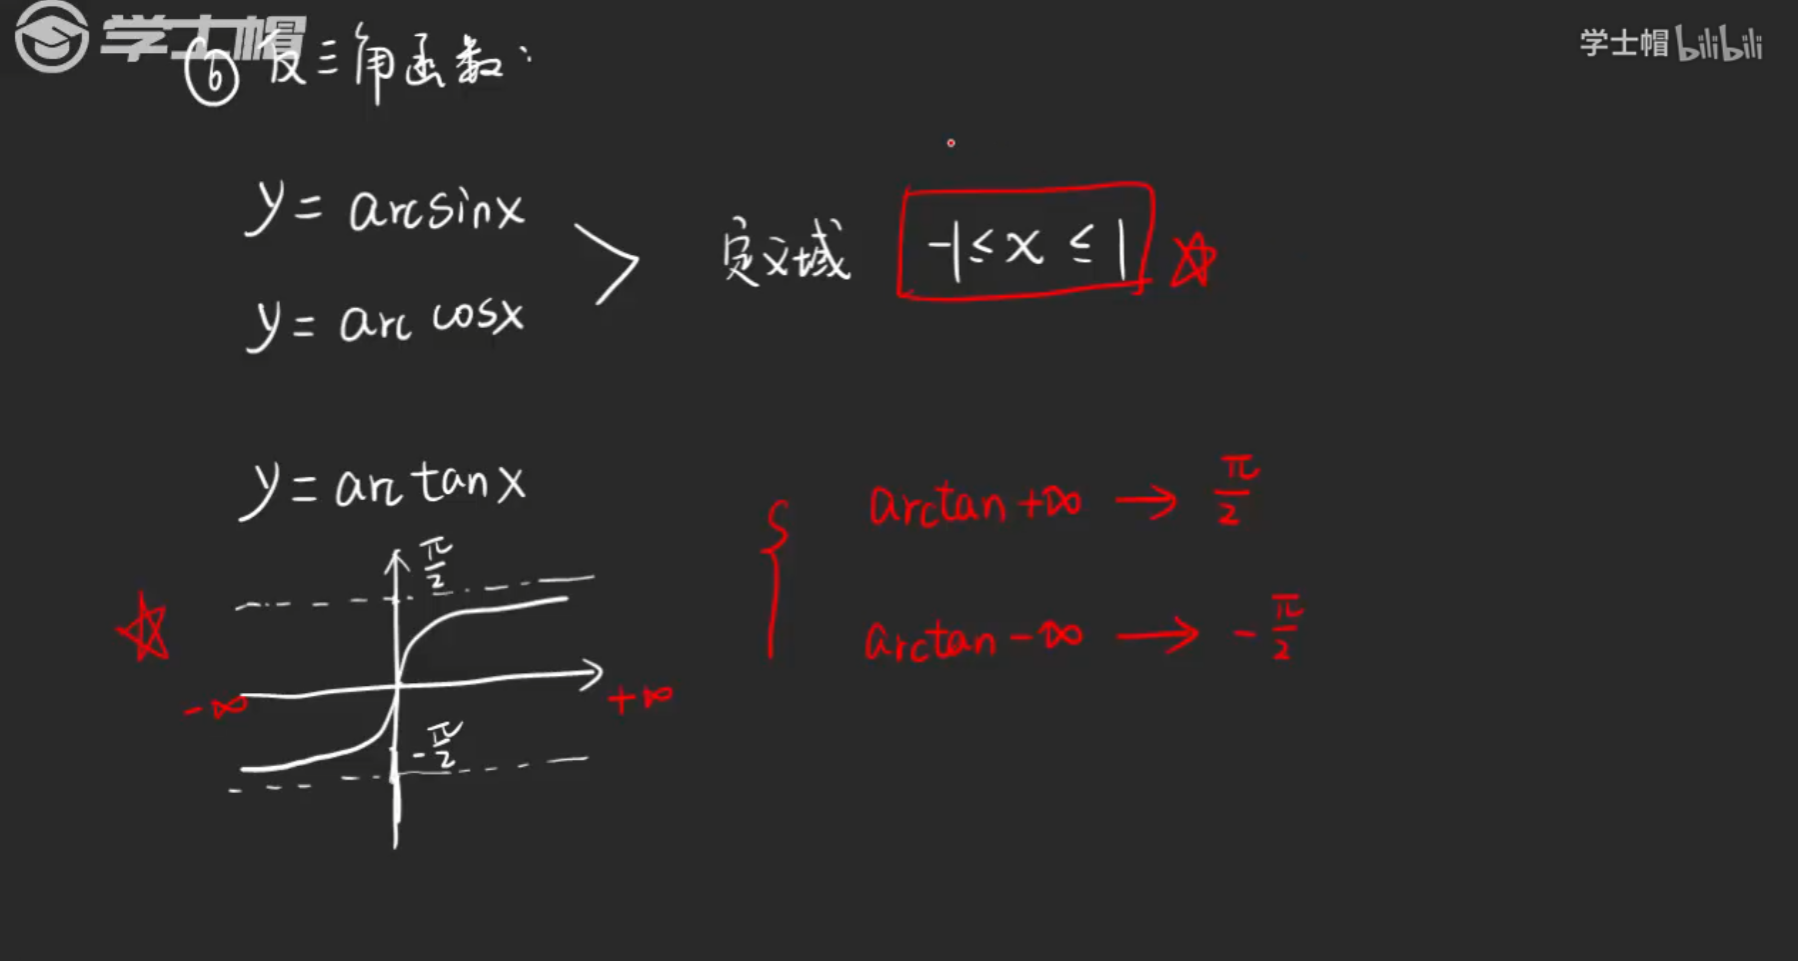 学士帽
学士帽 bilibili
⑥ 反三角函数:
y = arcsinx
y = arc cosx
定义域 -1 ≤ x ≤ 1
y = arctanx
π/2
-∞
+∞
-π/2
arctan +∞ → π/2
arctan -∞ → -π/2